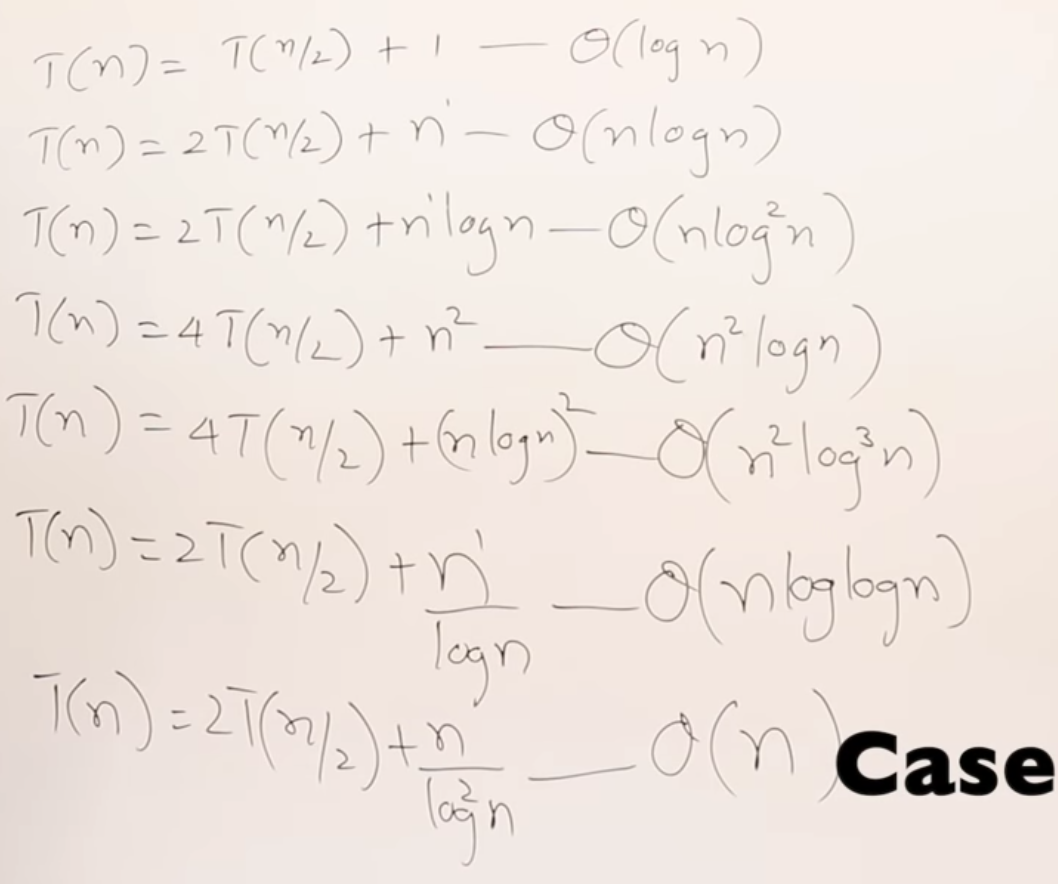 T(n) = T(n/2) + 1 — O(log n)
T(n) = 2T(n/2) + n¹ — O(nlogn)
T(n) = 2T(n/2) + n¹logn — O(nlog²n)
T(n) = 4T(n/2) + n² — O(n²logn)
T(n) = 4T(n/2) + (nlogn)² — O(n²log³n)
T(n) = 2T(n/2) + n¹/logn — O(nloglogn)
T(n) = 2T(n/2) + n/log²n — O(n)
Case